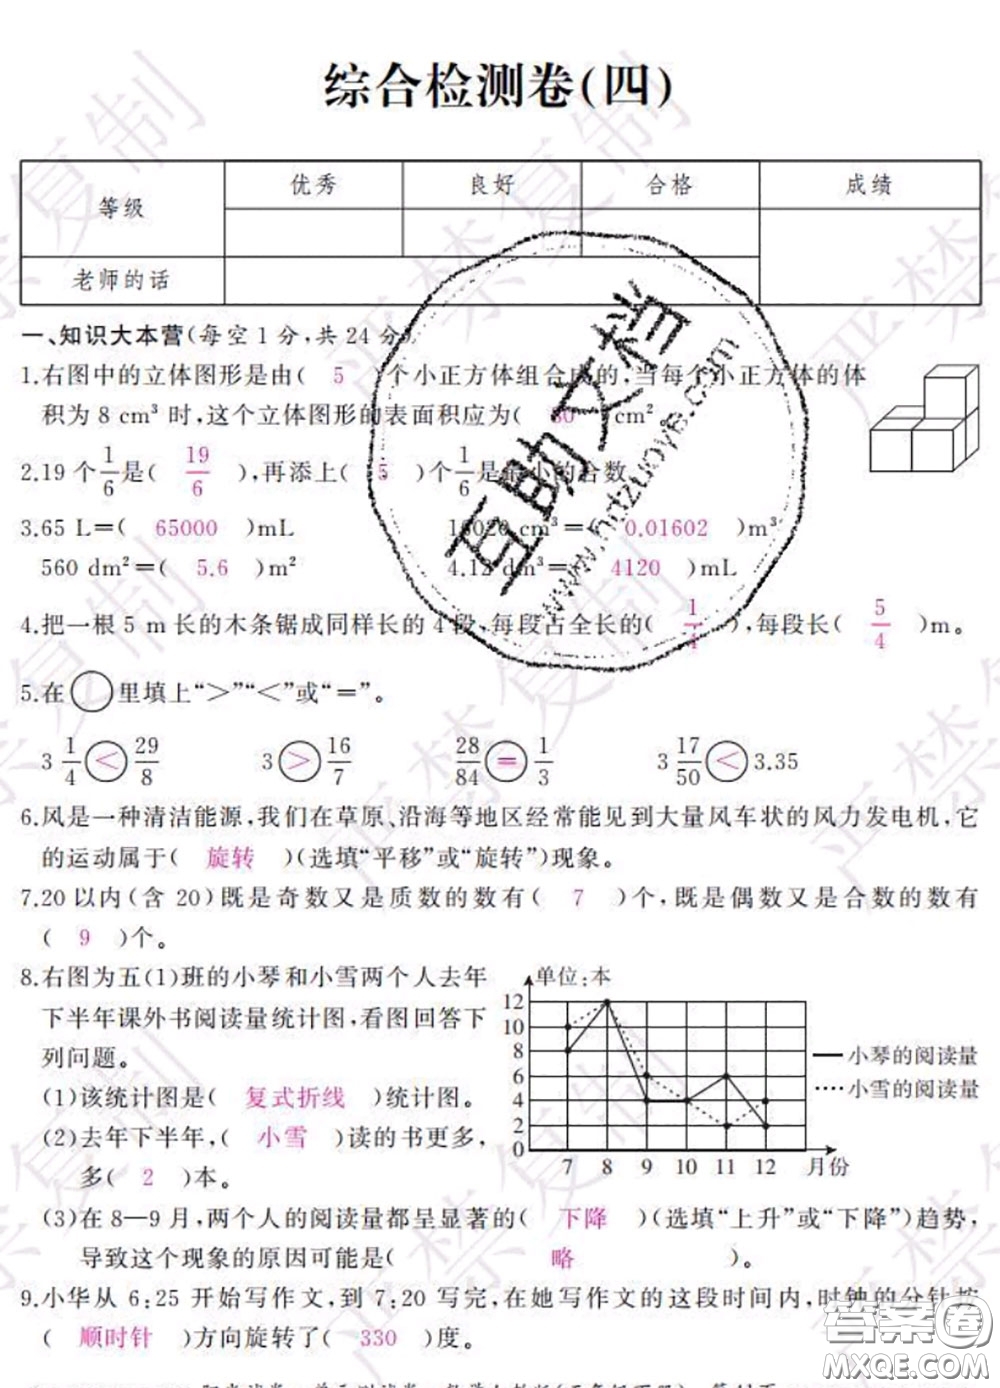 综合检测卷(四)
等级 优秀 良好 合格 成绩
老师的话
一、知识大本营(每空1分,共24分)
1.右图中的立体图形是由( 5 )个小正方体组合成的,当每个小正方体的体
积为8 cm³时,这个立体图形的表面积应为( 80 )cm²。
2.19个1/6是( 19/6 ),再添上( 5 )个1/6是最小的合数
3.65 L=( 65000 )mL 16020 cm³=( 0.01602 )m³
560 dm²=( 5.6 )m² 4.12 dm³=( 4120 )mL
4.把一根5 m长的木条锯成同样长的4段,每段占全长的( 1/4 ),每段长( 5/4 )m。
5.在○里填上“>”“<”或“=”。
3 1/4 < 29/8 3 > 16/7 28/84 = 1/3 3 17/50 < 3.35
6.风是一种清洁能源,我们在草原、沿海等地区经常能见到大量风车状的风力发电机,它
的运动属于( 旋转 )(选填“平移”或“旋转”)现象。
7.20以内(含20)既是奇数又是质数的数有( 7 )个,既是偶数又是合数的数有
( 9 )个。
8.右图为五(1)班的小琴和小雪两个人去年
下半年课外书阅读量统计图,看图回答下
列问题。
(1)该统计图是( 复式折线 )统计图。
(2)去年下半年,( 小雪 )读的书更多,
多( 2 )本。
单位:本
12
10
8
6
4
2
0
7 8 9 10 11 12 月份
小琴的阅读量
小雪的阅读量
(3)在8—9月,两个人的阅读量都呈显著的( 下降 )(选填“上升”或“下降”)趋势,
导致这个现象的原因可能是( 略 )。
9.小华从6:25开始写作文,到7:20写完,在她写作文的这段时间内,时钟的分针按
( 顺时针 )方向旋转了( 330 )度。
互助文档
www.hdzuoye.com
严禁复制
答案圈
MXQE.COM